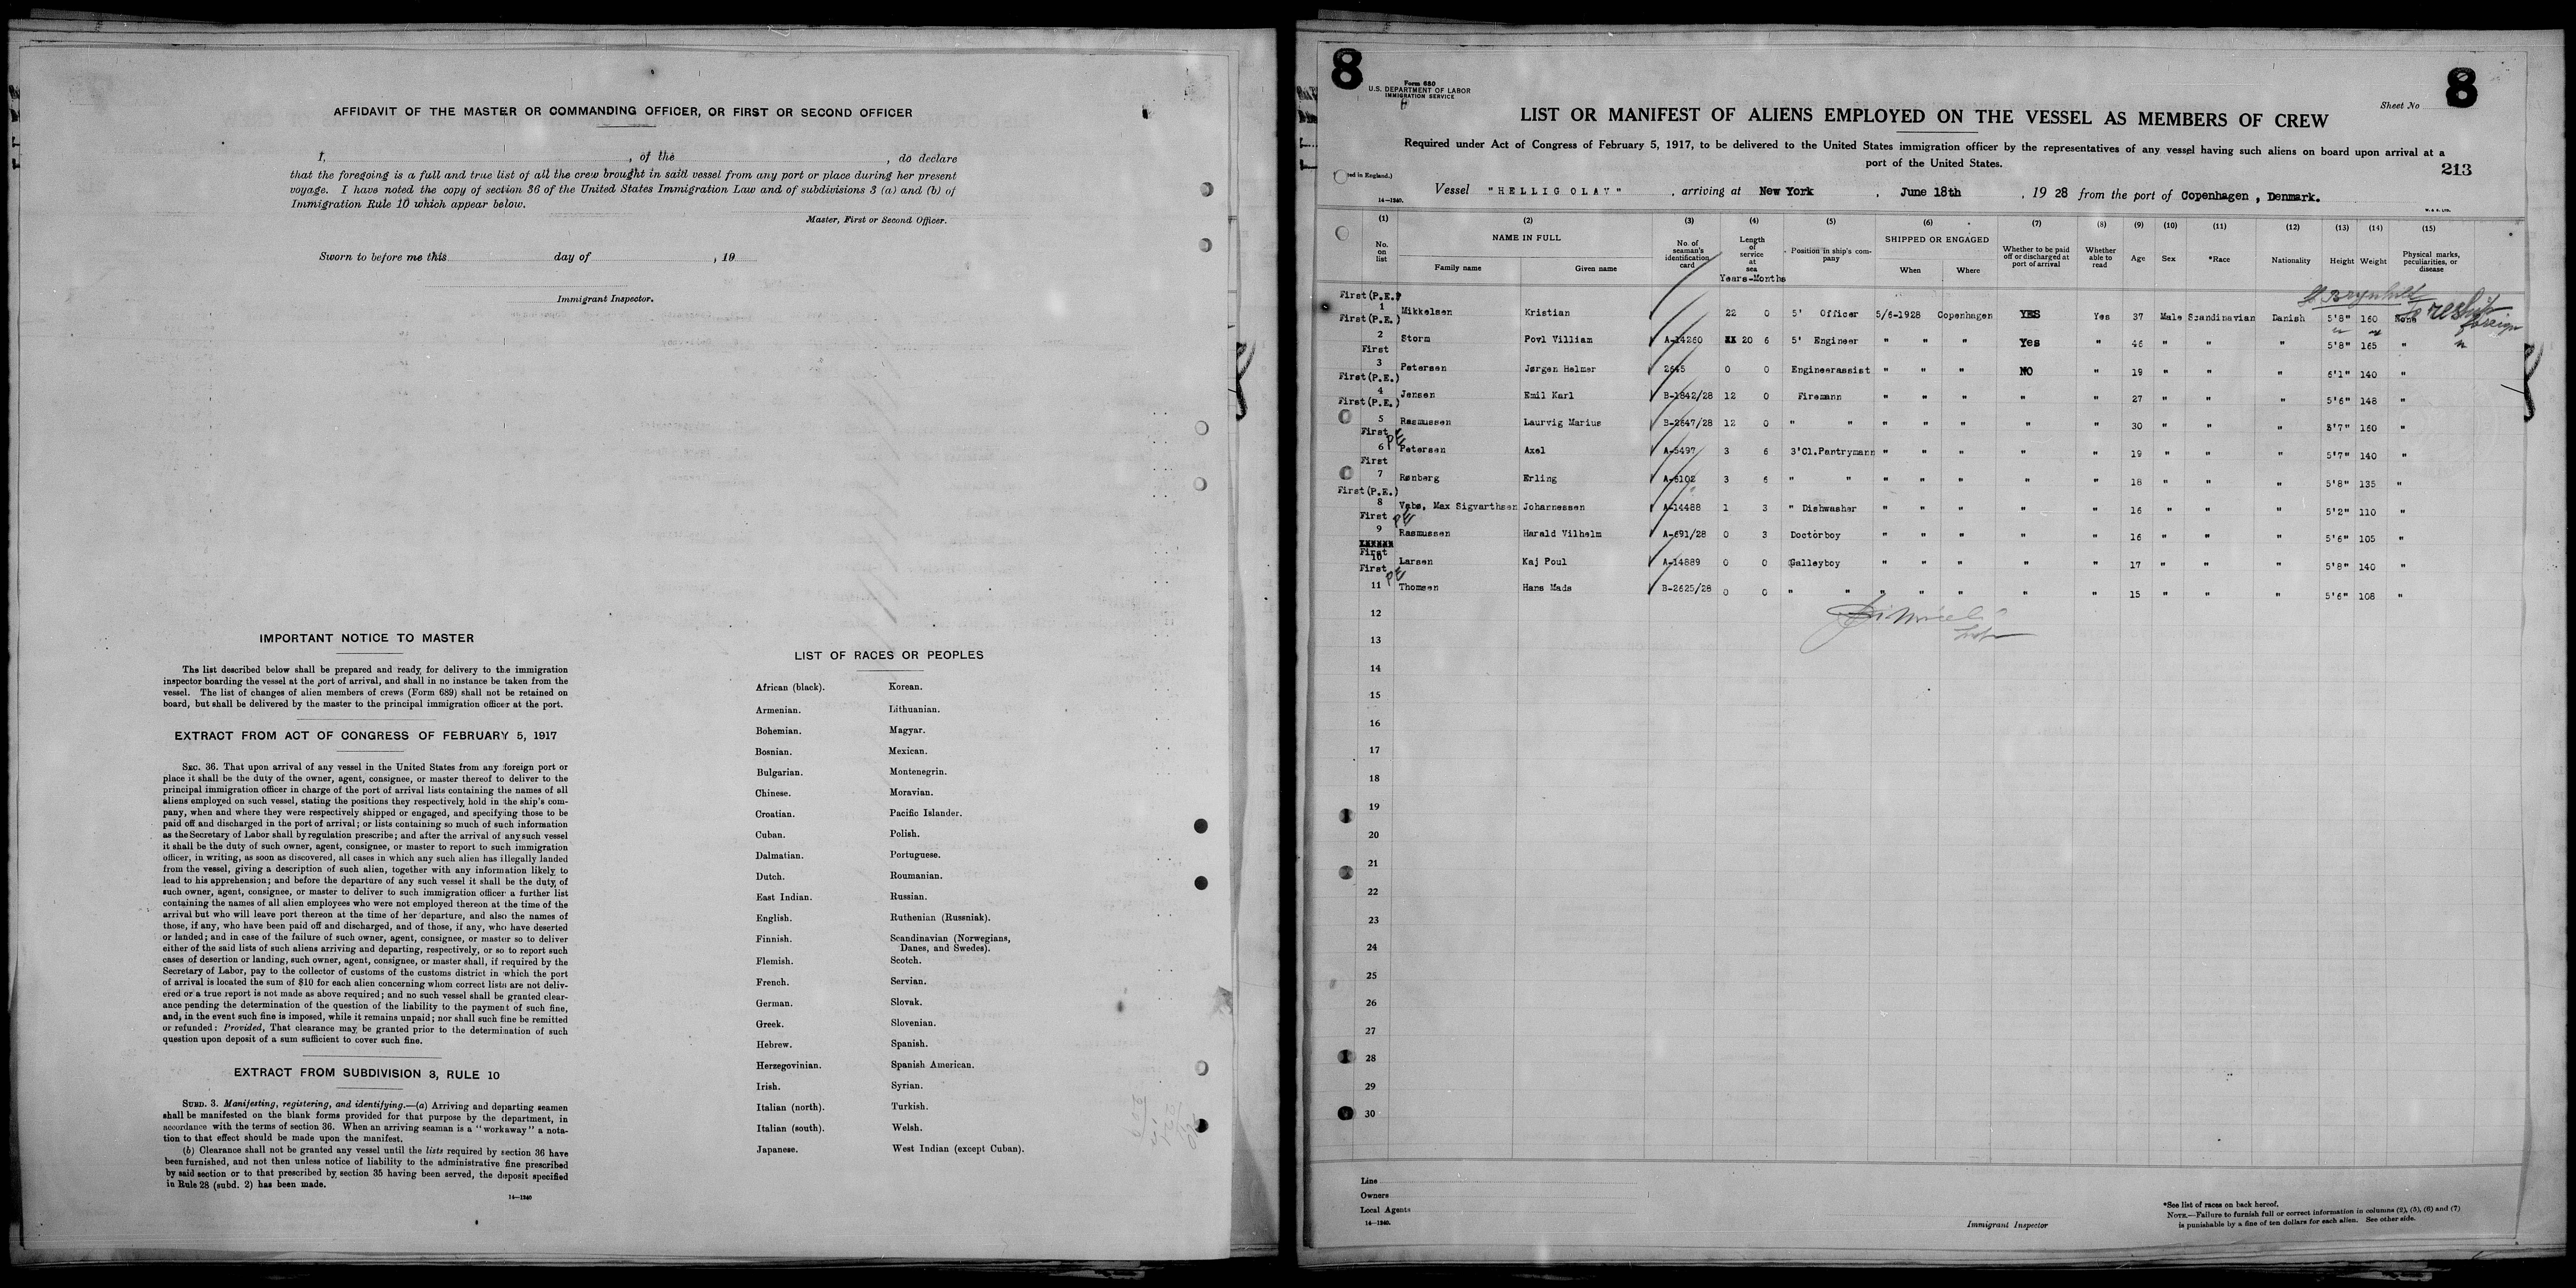 AFFIDAVIT OF THE MASTER OR COMMANDING OFFICER, OR FIRST OR SECOND OFFICER
I, , of the , do declare
that the foregoing is a full and true list of all the crew brought in said vessel from any port or place during her present
voyage. I have noted the copy of section 36 of the United States Immigration Law and of subdivisions 3 (a) and (b) of
Immigration Rule 10 which appear below.
Master, First or Second Officer.
Sworn to before me this day of , 19
Immigrant Inspector.
IMPORTANT NOTICE TO MASTER
The list described below shall be prepared and ready for delivery to the immigration
inspector boarding the vessel at the port of arrival, and shall in no instance be taken from the
vessel. The list of changes of alien members of crews (Form 689) shall not be retained on
board, but shall be delivered by the master to the principal immigration officer at the port.
EXTRACT FROM ACT OF CONGRESS OF FEBRUARY 5, 1917
SEC. 36. That upon arrival of any vessel in the United States from any foreign port or
place it shall be the duty of the owner, agent, consignee, or master thereof to deliver to the
principal immigration officer in charge of the port of arrival lists containing the names of all
aliens employed on such vessel, stating the positions they respectively hold in the ship's com-
pany, when and where they were respectively shipped or engaged, and specifying those to be
paid off and discharged in the port of arrival; or lists containing so much of such information
as the Secretary of Labor shall by regulation prescribe; and after the arrival of any such vessel
it shall be the duty of such owner, agent, consignee, or master to report to such immigration
officer, in writing, as soon as discovered, all cases in which any such alien has illegally landed
from the vessel, giving a description of such alien, together with any information likely to
lead to his apprehension; and before the departure of any such vessel it shall be the duty of
such owner, agent, consignee, or master to deliver to such immigration officer a further list
containing the names of all alien employees who were not employed thereon at the time of the
arrival but who will leave port thereon at the time of her departure, and also the names of
those, if any, who have been paid off and discharged, and of those, if any, who have deserted
or landed; and in case of the failure of such owner, agent, consignee, or master so to deliver
either of the said lists of such aliens arriving and departing, respectively, or so to report such
cases of desertion or landing, such owner, agent, consignee, or master shall, if required by the
Secretary of Labor, pay to the collector of customs of the customs district in which the port
of arrival is located the sum of $10 for each alien concerning whom correct lists are not deliv-
ered or a true report is not made as above required; and no such vessel shall be granted clear-
ance pending the determination of the question of the liability to the payment of such fine,
and, in the event such fine is imposed, while it remains unpaid; nor shall such fine be remitted
or refunded: Provided, That clearance may be granted prior to the determination of such
question upon deposit of a sum sufficient to cover such fine.
EXTRACT FROM SUBDIVISION 3, RULE 10
SUBD. 3. Manifesting, registering, and identifying.—(a) Arriving and departing seamen
shall be manifested on the blank forms provided for that purpose by the department, in
accordance with the terms of section 36. When an arriving seaman is a "workaway" a nota-
tion to that effect should be made upon the manifest.
(b) Clearance shall not be granted any vessel until the lists required by section 36 have
been furnished, and not then unless notice of liability to the administrative fine prescribed
by said section or to that prescribed by section 35 having been served, the deposit specified
in Rule 28 (subd. 2) has been made.
14—1240
LIST OF RACES OR PEOPLES
African (black). Korean.
Armenian. Lithuanian.
Bohemian. Magyar.
Bosnian. Mexican.
Bulgarian. Montenegrin.
Chinese. Moravian.
Croatian. Pacific Islander.
Cuban. Polish.
Dalmatian. Portuguese.
Dutch. Roumanian.
East Indian. Russian.
English. Ruthenian (Russniak).
Finnish. Scandinavian (Norwegians,
Danes, and Swedes).
Flemish. Scotch.
French. Servian.
German. Slovak.
Greek. Slovenian.
Hebrew. Spanish.
Herzegovinian. Spanish American.
Irish. Syrian.
Italian (north). Turkish.
Italian (south). Welsh.
Japanese. West Indian (except Cuban).
8 8
Form 680
U.S. DEPARTMENT OF LABOR
IMMIGRATION SERVICE
Sheet No
LIST OR MANIFEST OF ALIENS EMPLOYED ON THE VESSEL AS MEMBERS OF CREW
Required under Act of Congress of February 5, 1917, to be delivered to the United States immigration officer by the representatives of any vessel having such aliens on board upon arrival at a
port of the United States.
213
Vessel "HELLIG OLAV", arriving at New York, June 18th, 1928 from the port of Copenhagen, Denmark.
14—1240.
(1) (2) (3) (4) (5) (6) (7) (8) (9) (10) (11) (12) (13) (14) (15)
No. on list
NAME IN FULL
Family name Given name
No. of seaman's identification card
Length of service at sea
Years-Months
Position in ship's com-pany
SHIPPED OR ENGAGED
When Where
Whether to be paid off or discharged at port of arrival
Whether able to read
Age Sex *Race Nationality Height Weight
Physical marks, peculiarities, or disease
First(P.E.)
1 Mikkelsen Kristian 22 0 5' Officer 5/6-1928 Copenhagen YES Yes 37 Male Scandinavian Danish 5'8" 160 None reship foreign
First(P.E.)
2 Storm Povl Villiam A-14260 20 6 5' Engineer " " " Yes " 46 " " " 5'8" 165 "
First
3 Petersen Jørgen Helmer 2645 0 0 Engineerassist " " " NO " 19 " " " 6'1" 140 "
First(P.E.)
4 Jensen Emil Karl B-1842/28 12 0 Firemann " " " " " 27 " " " 5'6" 148 "
First(P.E.)
5 Rasmussen Laurvig Marius B-2647/28 12 0 " " " " " " " 30 " " " 5'7" 160 "
First PE
6 Petersen Axel A-5497 3 6 3'Cl.Pantrymann " " " " " 19 " " " 5'7" 140 "
First
7 Rønberg Erling A-6102 3 6 " " " " " " " 18 " " " 5'8" 135 "
First(P.E.)
8 Vebø, Max Sigvarthsen Johannessen A-14488 1 3 " Dishwasher " " " " " 16 " " " 5'2" 110 "
First PE
9 Rasmussen Harald Vilhelm A-691/28 0 3 Doctorboy " " " " " 16 " " " 5'6" 105 "
First
10 Larsen Kaj Poul A-14889 0 0 Galleyboy " " " " " 17 " " " 5'8" 140 "
First PE
11 Thomsen Hans Mads B-2625/28 0 0 " " " " " " " 15 " " " 5'6" 108 "
12
13
14
15
16
17
18
19
20
21
22
23
24
25
26
27
28
29
30
Line
Owners
Local Agents
14—1240.
Immigrant Inspector
*See list of races on back hereof.
NOTE.—Failure to furnish full or correct information in columns (2), (5), (6) and (7)
is punishable by a fine of ten dollars for each alien. See other side.